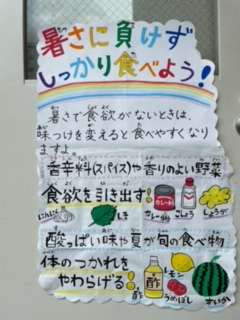 暑さに負けず
しっかり食べよう!
暑さで食欲がないときは、
味つけを変えると食べやすくなり
ますよ。
香辛料(スパイス)や香りのよい野菜
食欲を引き出す!
にんにく しそ カレー粉 こしょう しょうが
酸っぱい味や夏が旬の食べ物
体のつかれを
やわらげる!
酢 酢 レモン うめぼし すいか